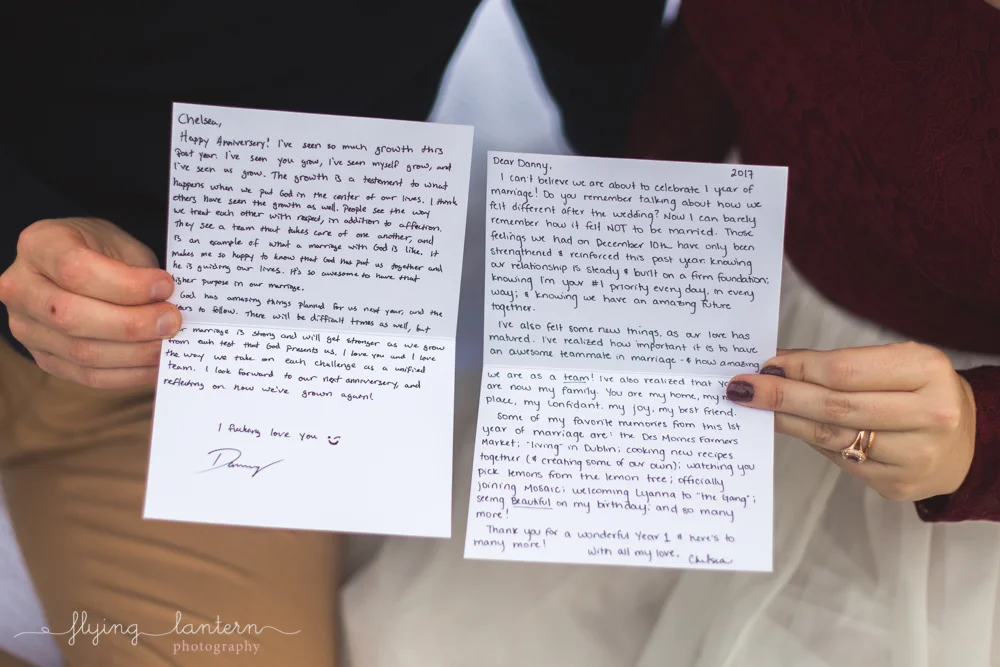 Chelsea,
Happy Anniversery! I've seen so much growth this
past year. I've seen you grow, I've seen myself grow, and
I've seen us grow. The growth is a testament to what
happens when we put God in the center of our lives. I think
others have seen the growth as well. People see the way
we treat each other with respect, in addition to affection.
They see a team that takes care of one another, and
is an example of what a marriage with God is like. It
makes me so happy to know that God has put us together and
he is guiding our lives. It's so awesome to have that
higher purpose in our marriage.
God has amazing things planned for us next year, and the
years to follow. There will be difficult times as well, but
marriage is strong and will get stronger as we grow
from each test that God presents us. I love you and I love
the way we take on each challenge as a unified
team. I look forward to our next anniversary, and
reflecting on how we've grown again!
I fucking love you
Danny
2017
Dear Danny,
I can't believe we are about to celebrate 1 year of
marriage! Do you remember talking about how we
felt different after the wedding? Now I can barely
remember how it felt NOT to be married. Those
feelings we had on December 10th have only been
strengthened & reinforced this past year knowing
our relationship is steady & built on a firm foundation;
knowing I'm your #1 priority every day, in every
way; & knowing we have an amazing future
together.
I've also felt some new things, as our love has
matured. I've realized how important it is to have
an awesome teammate in marriage - & how amazing
we are as a team! I've also realized that
are now my family. You are my home, my
place, my confidant, my joy, my best friend.
Some of my favorite memories from this 1st
year of marriage are: the Des Moines Farmers
Market; "living" in Dublin; cooking new recipes
together (& creating some of our own); watching you
pick lemons from the lemon tree; officially
joining Mosaic; welcoming Lyanna to "the Gang";
seeing Beautiful on my birthday; and so many
more!
Thank you for a wonderful Year 1 & here's to
many more!
With all my love, Chelsea
flying lantern
photography